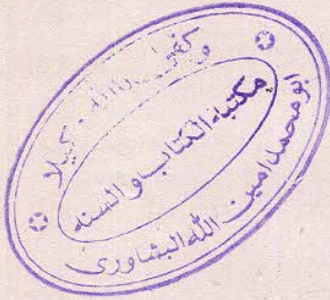 وكفى بالله وكيلا
مكتبة الكتاب والسنه
ابو محمد امين الله البشاوری